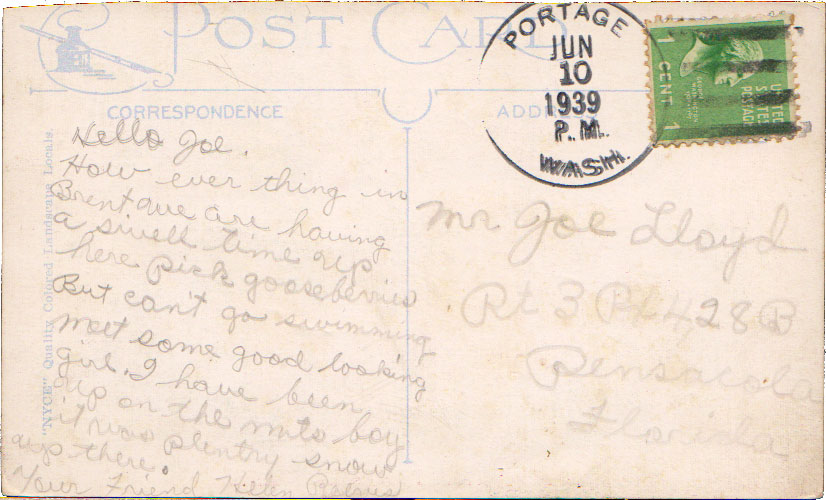 POST CARD
PORTAGE
JUN
10
1939
P.M.
WASH.
1 CENT 1
UNITED
STATES
POSTAGE
CORRESPONDENCE
ADDRESS
"NYCE" Quality Colored Landscape Locals.
Hello Joe.
How ever thing in
Brent we are having
a swell time up
here pick gooseberries
But can't go swimming
meet some good looking
girl. I have been
up on the mts boy
it was plentry snow
up there.
Your Friend
Mr Joe Lloyd
Rt 3 Bx 428B
Pensacola
Florida